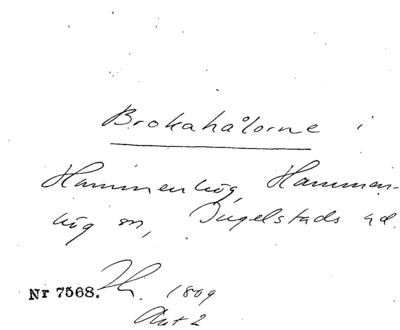 Brokahålorne i
Hammenhög, Hammen-
hög sn, Ingelstads hd.
Nr 7568. 1809
Akt 2